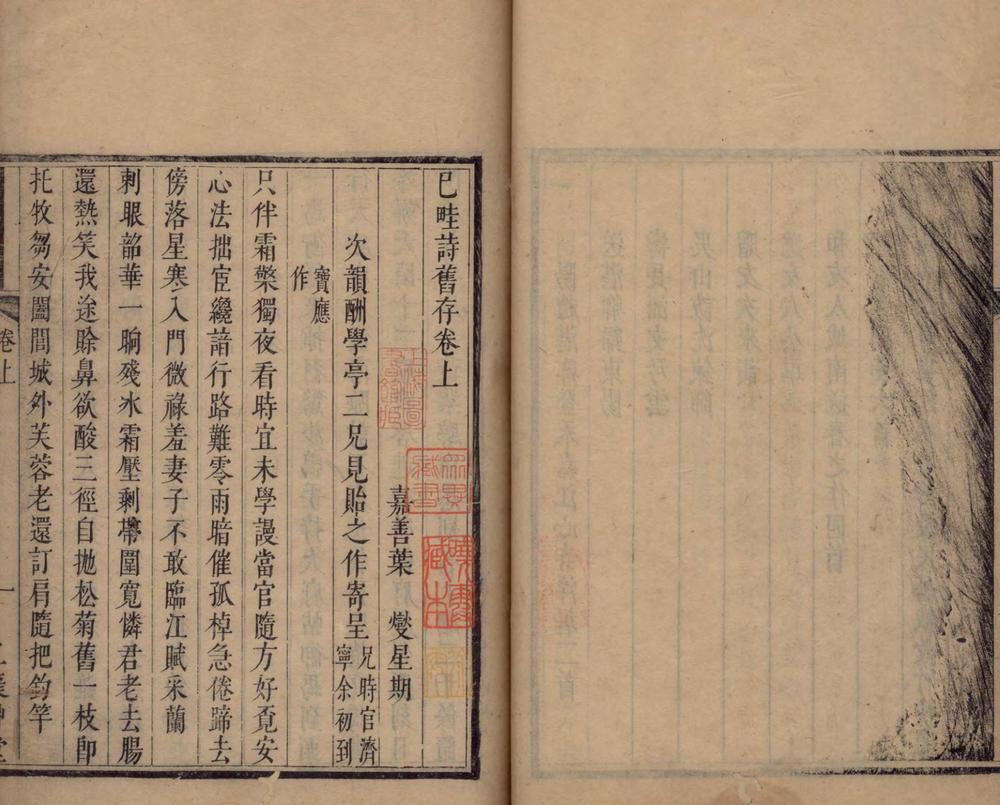 已畦詩舊存卷上
嘉善葉　燮星期
次韻酬學亭二兄見貽之作寄呈兄時官濟寧余初到
寶應作
只伴霜檠獨夜看時宜未學謾當官隨方好覓安
心法拙宦纔諳行路難零雨暗催孤棹急倦蹄去
傍落星寒入門微祿羞妻子不敢臨江賦采蘭
刺眼韶華一晌殘冰霜壓剩帶圍寬憐君老去腸
還熱笑我途賒鼻欲酸三徑自拋松菊舊一枝卽
托牧芻安闔閭城外芙蓉老還訂肩隨把釣竿
卷上
一